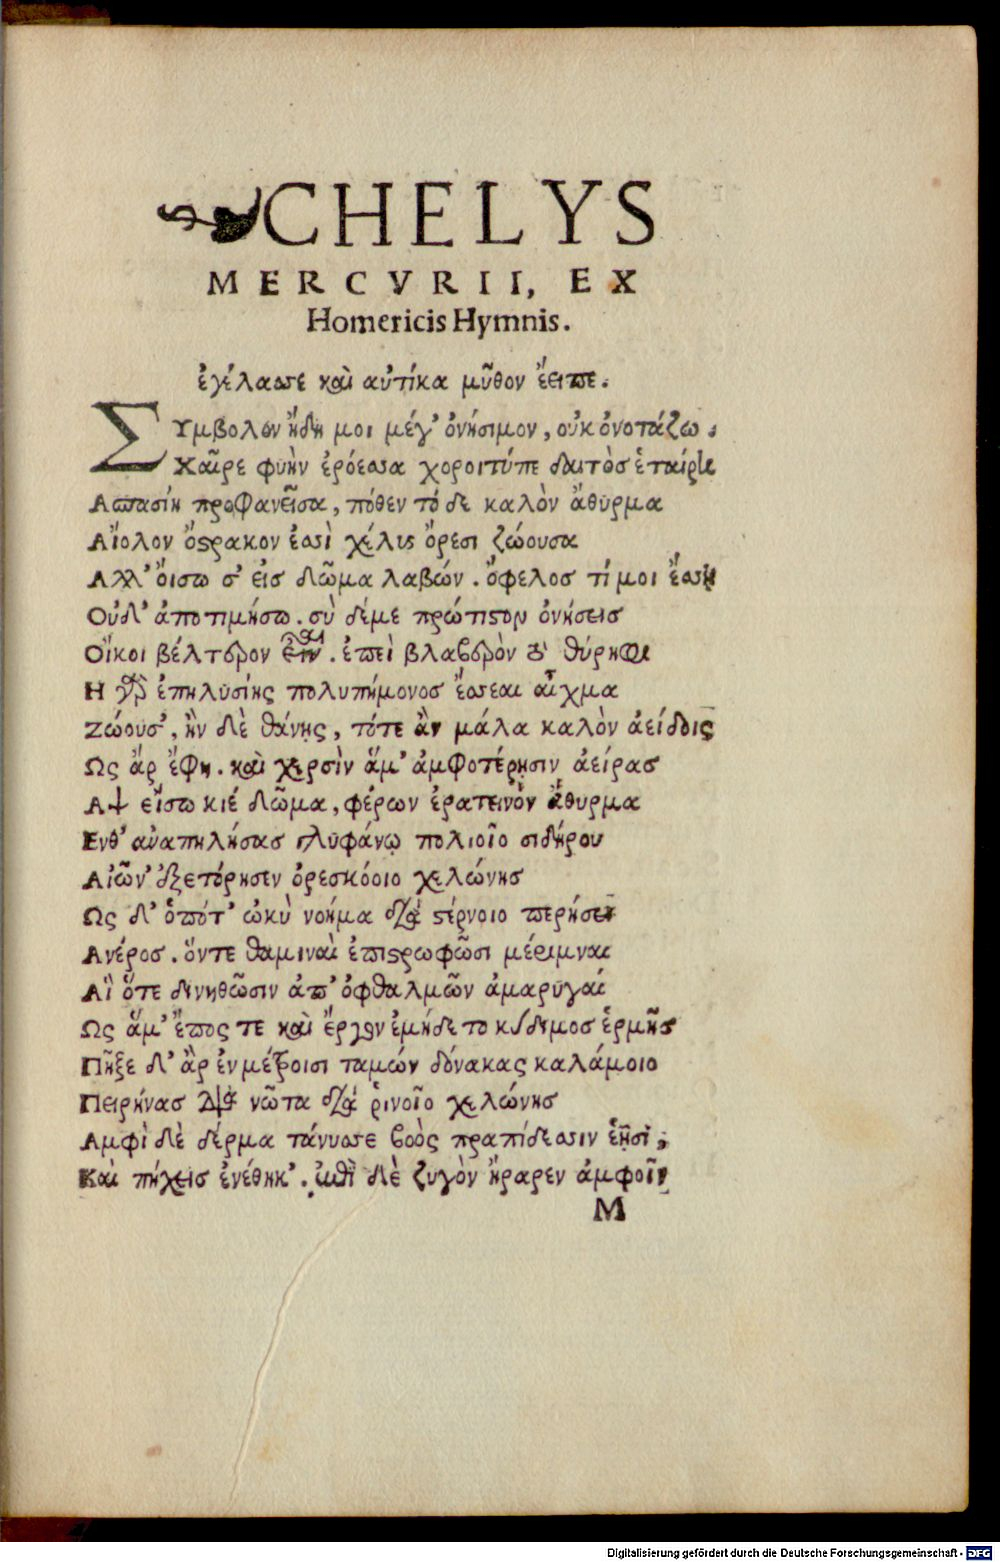 CHELYS
MERCVRII, EX
Homericis Hymnis.
ἐγέλασσε καὶ αὐτίκα μῦθον ἔειπε.
ΣΥμβολον ἤδη μοι μέγ' ὀνήσιμον, οὐκ ὀνοτάζω.
Χαῖρε φυὴν ἐρόεσσα χοροιτύπε δαιτὸς ἑταίρη
Ασπασίη προφανεῖσα, πόθεν τό δε καλὸν ἄθυρμα
Αἴολον ὄστρακον ἐσσὶ χέλυς ὄρεσι ζώουσα
Αλλ' ὄισω σ' εἰς δῶμα λαβών. ὄφελος τί μοι ἔσση
Οὐδ' ἀποτιμήσω. σὺ δέμε πρώτιστον ὀνήσεις
Οἴκοι βέλτερον εἶναι. ἐπεὶ βλαβερὸν τὸ θύρηφι
Η γὰρ ἐπηλυσίης πολυπήμονος ἔσσεαι αἶχμα
Ζώουσ', ἢν δὲ θάνῃς, τότε ἂν μάλα καλὸν ἀείδοις
Ως ἄρ ἔφη. καὶ χερσὶν ἅμ' ἀμφοτέρῃσιν ἀείρας
Αψ εἴσω κιέ δῶμα, φέρων ἐρατεινὸν ἄθυρμα
Ενθ' ἀναπηλήσας γλυφάνῳ πολιοῖο σιδήρου
Αἰῶν' ἐξετόρησεν ὀρεσκόοιο χελώνης
Ως δ' ὁπότ' ὠκὺ νόημα διὰ στέρνοιο περήσει
Ανέρος. ὅντε θαμιναὶ ἐπιστρωφῶσι μέριμναι
Αἳ ὅτε δινηθῶσιν ἀπ' ὀφθαλμῶν ἀμαρυγαί
Ως ἅμ' ἔπος τε καὶ ἔργον ἐμήδε το κύδιμος ἑρμῆς
Πῆξε δ' ἂρ ἐν μέτροισι ταμὼν δόνακας καλάμοιο
Πειρήνας διὰ νῶτα διὰ ῥινοῖο χελώνης
Αμφὶ δὲ δέρμα τάνυσσε βοὸς πραπίδεσσιν ἑῇσι,
Καὶ πήχεις ἐνέθηκ'. ἐπὶ δὲ ζυγὸν ἤραρεν ἀμφοῖν
M
Digitalisierung gefördert durch die Deutsche Forschungsgemeinschaft - DFG